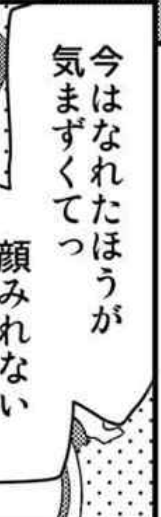 今はなれたほうが
気まずくてっ
顔みれない